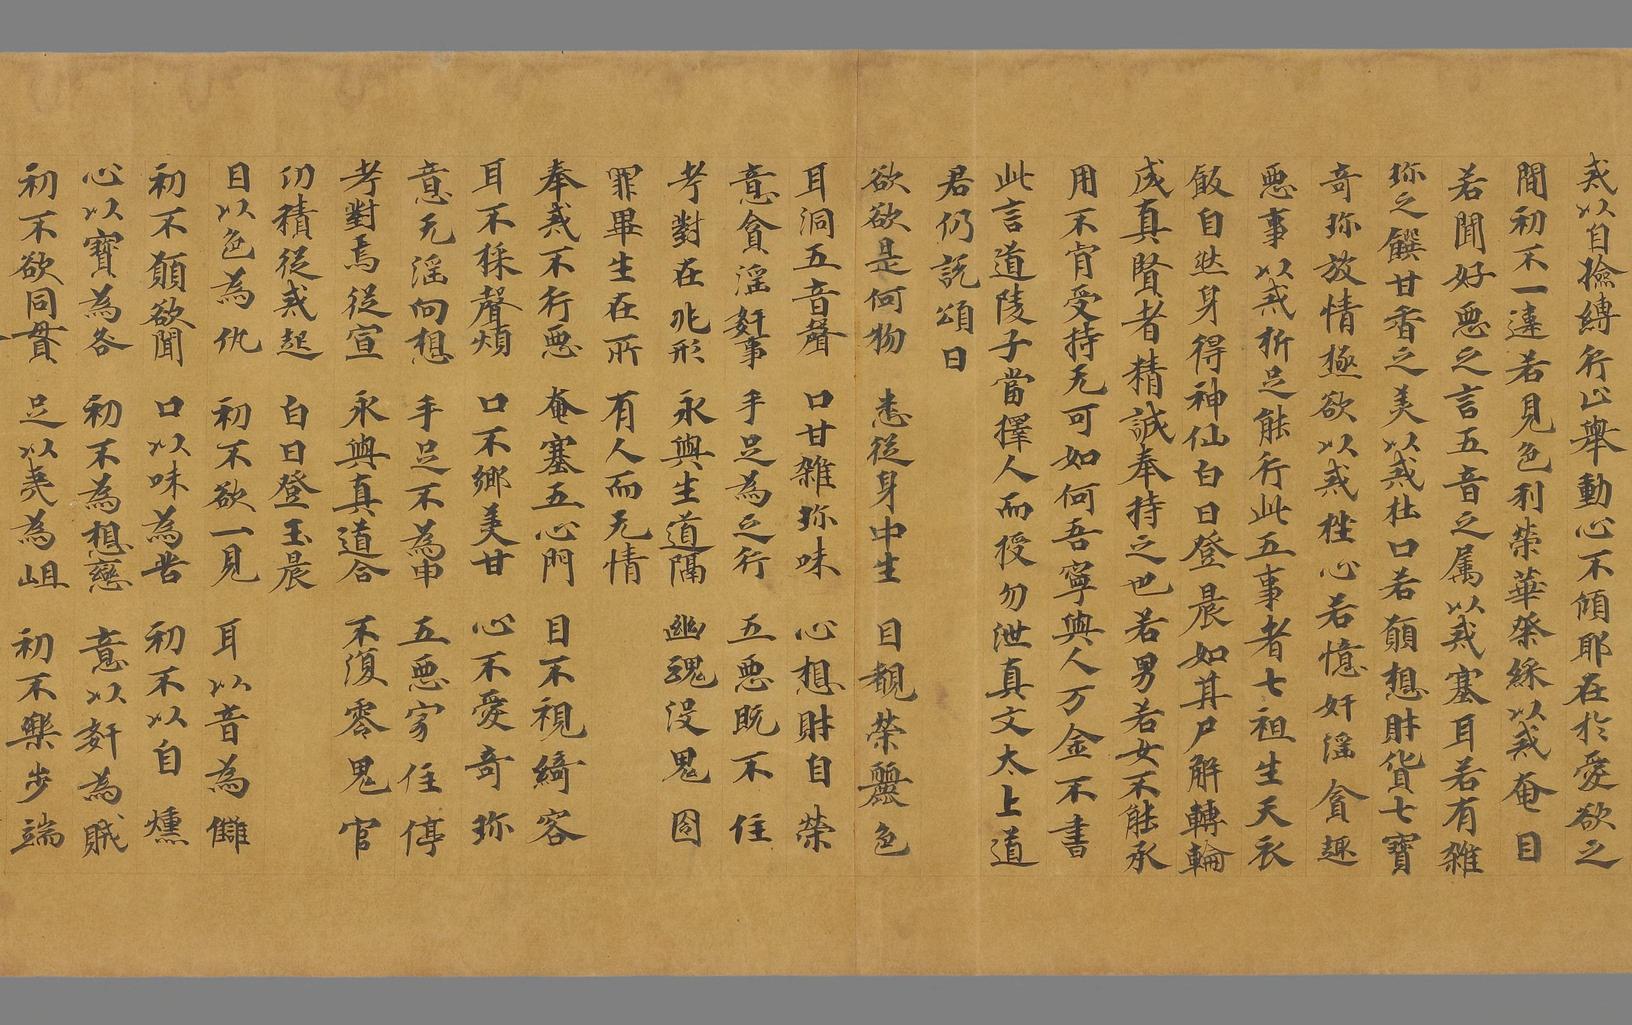 戒以自撿縛行止舉動心不傾耶在於愛欲之
間初不一違若見色利榮華榮綵以戒奄目
若聞好惡之言五音之属以戒塞耳若有雜
珎之饌甘香之美以戒杜口若願想財貨七寶
奇珎放情極欲以戒挫心若憶奸滛貪趣
惡事以戒折足能行此五事者七祖生天衣
飯自然身得神仙白日登晨如其尸解轉輪
成真賢者精誠奉持之也若男若女不能承
用不肯受持无可如何吾寧與人万金不書
此言道陵子當擇人而授勿泄真文太上道
君仍說頌曰
欲欲是何物 恚從身中生 目覩榮麗色
耳洞五音聲 口甘雜珎味 心想財自榮
意貪滛姧事 手足為之行 五惡既不住
考對在兆形 永與生道隔 幽魂没鬼囹
罪畢生在所 有人而无情
奉戒不行惡 奄塞五心門 目不視綺容
耳不採聲煩 口不嚮美甘 心不愛奇珎
意无滛向想 手足不為申 五惡家住停
考對焉從宣 永與真道合 不復零鬼官
功積從戒起 白日登玉晨
目以色為仇 初不欲一見 耳以音為讎
初不願欲聞 口以味為苦 初不以自燻
心以寶為各 初不為想戀 意以姧為賊
初不欲同貫 足以堯為岨 初不樂步端